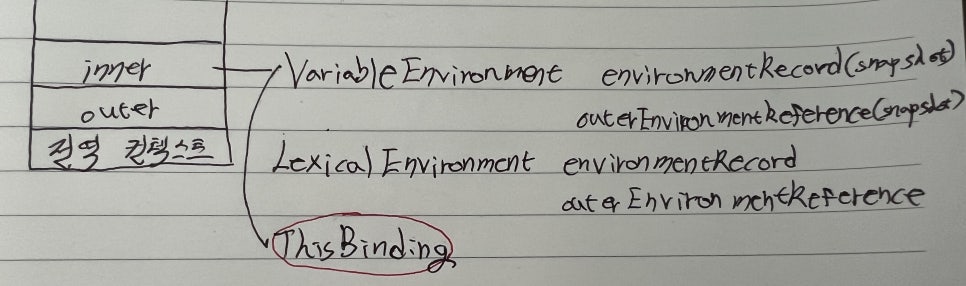 inner
outer
전역 컨텍스트
VariableEnvironment environmentRecord(snapshot)
outerEnvironmentReference(snapshot)
LexicalEnvironment environmentRecord
outerEnvironmentReference
ThisBinding